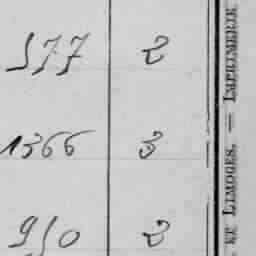 577 2
1366 3
950 2
ET LIMOGES. — IMPRIMERIE